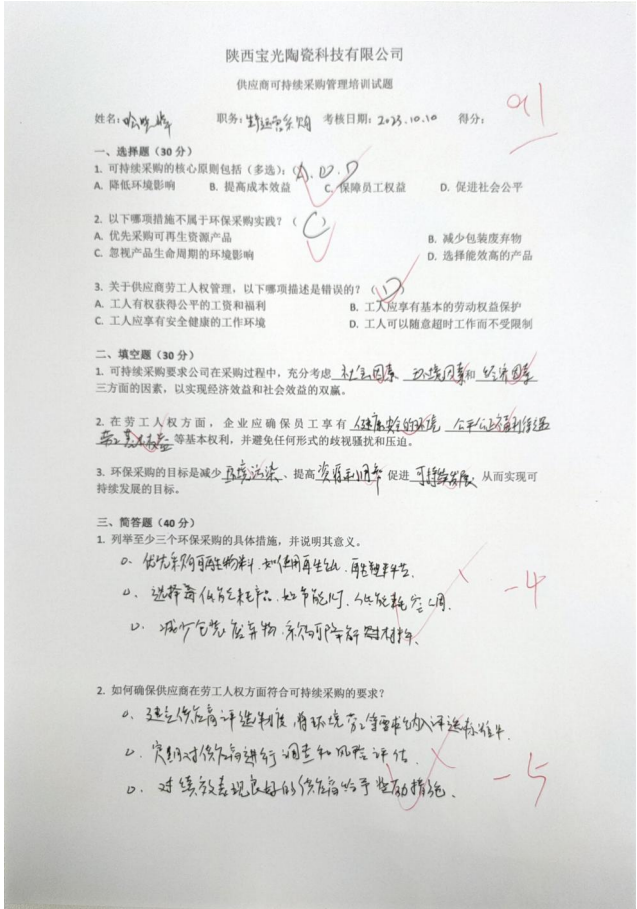 陕西宝光陶瓷科技有限公司
供应商可持续采购管理培训试题
姓名: 职务: 考核日期: 2023.10.10 得分: 91
一、选择题（30 分）
1. 可持续采购的核心原则包括（多选）：（A、C、D）
A. 降低环境影响 B. 提高成本效益 C. 保障员工权益 D. 促进社会公平
2. 以下哪项措施不属于环保采购实践？（ C ）
A. 优先采购可再生资源产品 B. 减少包装废弃物
C. 忽视产品生命周期的环境影响 D. 选择能效高的产品
3. 关于供应商劳工人权管理，以下哪项描述是错误的？（ D ）
A. 工人有权获得公平的工资和福利 B. 工人应享有基本的劳动权益保护
C. 工人应享有安全健康的工作环境 D. 工人可以随意超时工作而不受限制
二、填空题（30 分）
1. 可持续采购要求公司在采购过程中，充分考虑 社会因素 环境因素 和 经济因素
三方面的因素，以实现经济效益和社会效益的双赢。
2. 在劳工人权方面，企业应确保员工享有 健康安全的环境 公平公正福利待遇
劳工基本权益 等基本权利，并避免任何形式的歧视骚扰和压迫。
3. 环保采购的目标是减少 环境污染、提高 资源利用率 促进 可持续发展 从而实现可
持续发展的目标。
三、简答题（40 分）
1. 列举至少三个环保采购的具体措施，并说明其意义。
①、优先采购可再生物料，如使用再生纸、再生塑料等。
②、选择低能耗产品，如节能灯、低能耗空调。
③、减少包装废弃物，采购可降解材料。
-4
2. 如何确保供应商在劳工人权方面符合可持续采购的要求？
①、建立供应商评选制度，将环境、劳工等要求纳入评选标准中。
②、定期对供应商进行调查和风险评估。
③、对绩效表现良好的供应商给予奖励措施。
-5